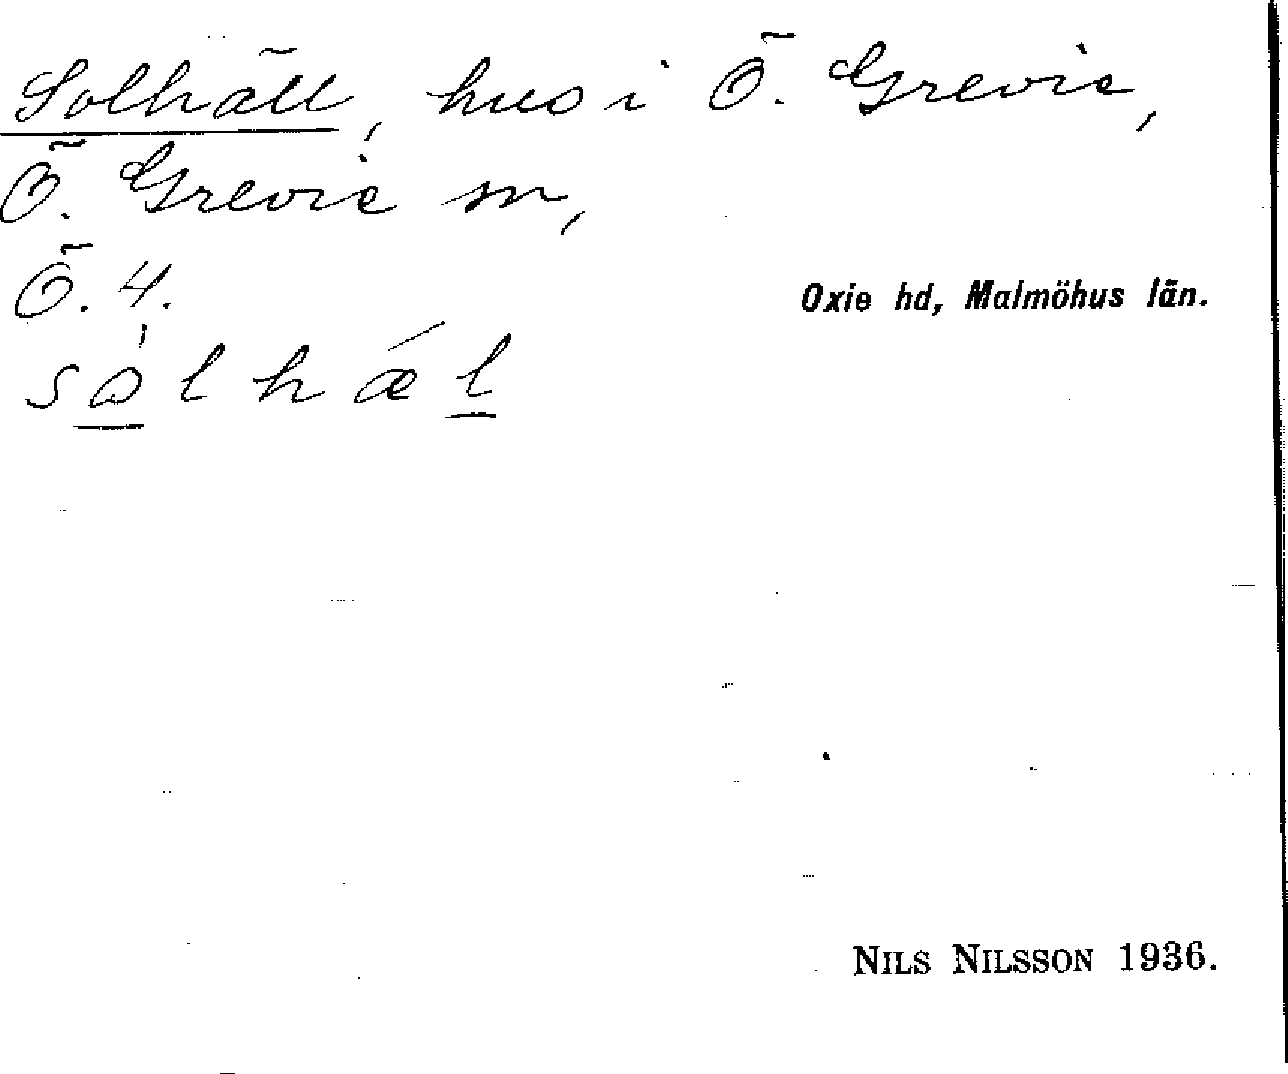 Solhäll, hus i Ö. Grevie,
Ö. Grevie sn,
Ö. 4.
Oxie hd, Malmöhus län.
sólhǽl
NILS NILSSON 1936.